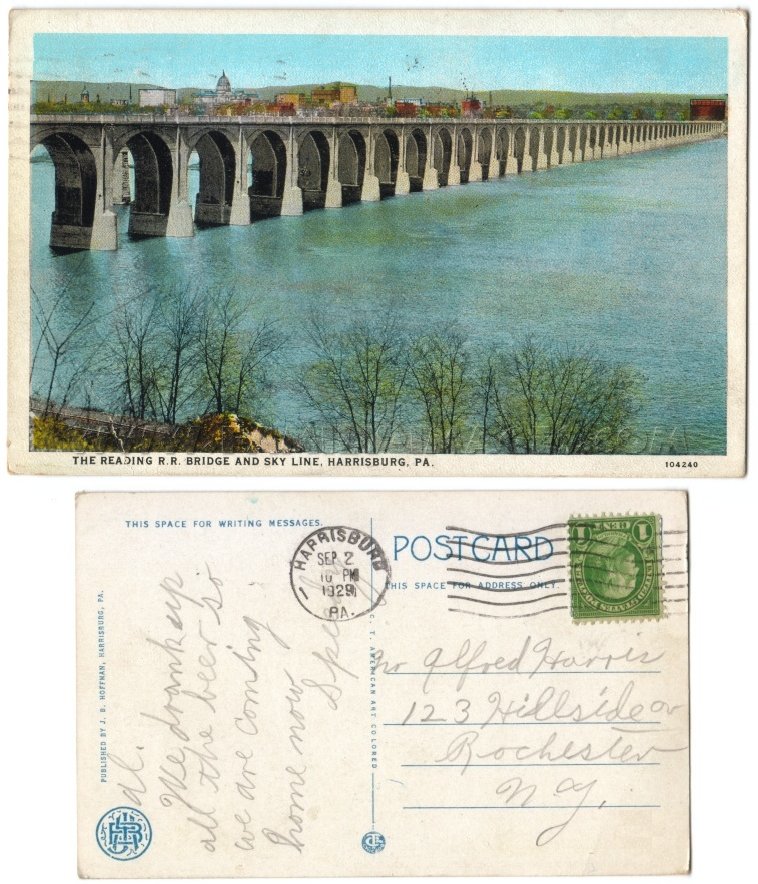 THE READING R.R. BRIDGE AND SKY LINE, HARRISBURG, PA.
104240
THIS SPACE FOR WRITING MESSAGES.
HARRISBURG
SEP 2
10 PM
1929
PA.
POSTCARD
THIS SPACE FOR ADDRESS ONLY.
PUBLISHED BY J. B. HOFFMAN, HARRISBURG, PA.
C. T. AMERICAN ART COLORED
Al.
We drank up
all the beer so
we are coming
home now
Mr Alfred Harris
123 Hillside av
Rochester
N Y.